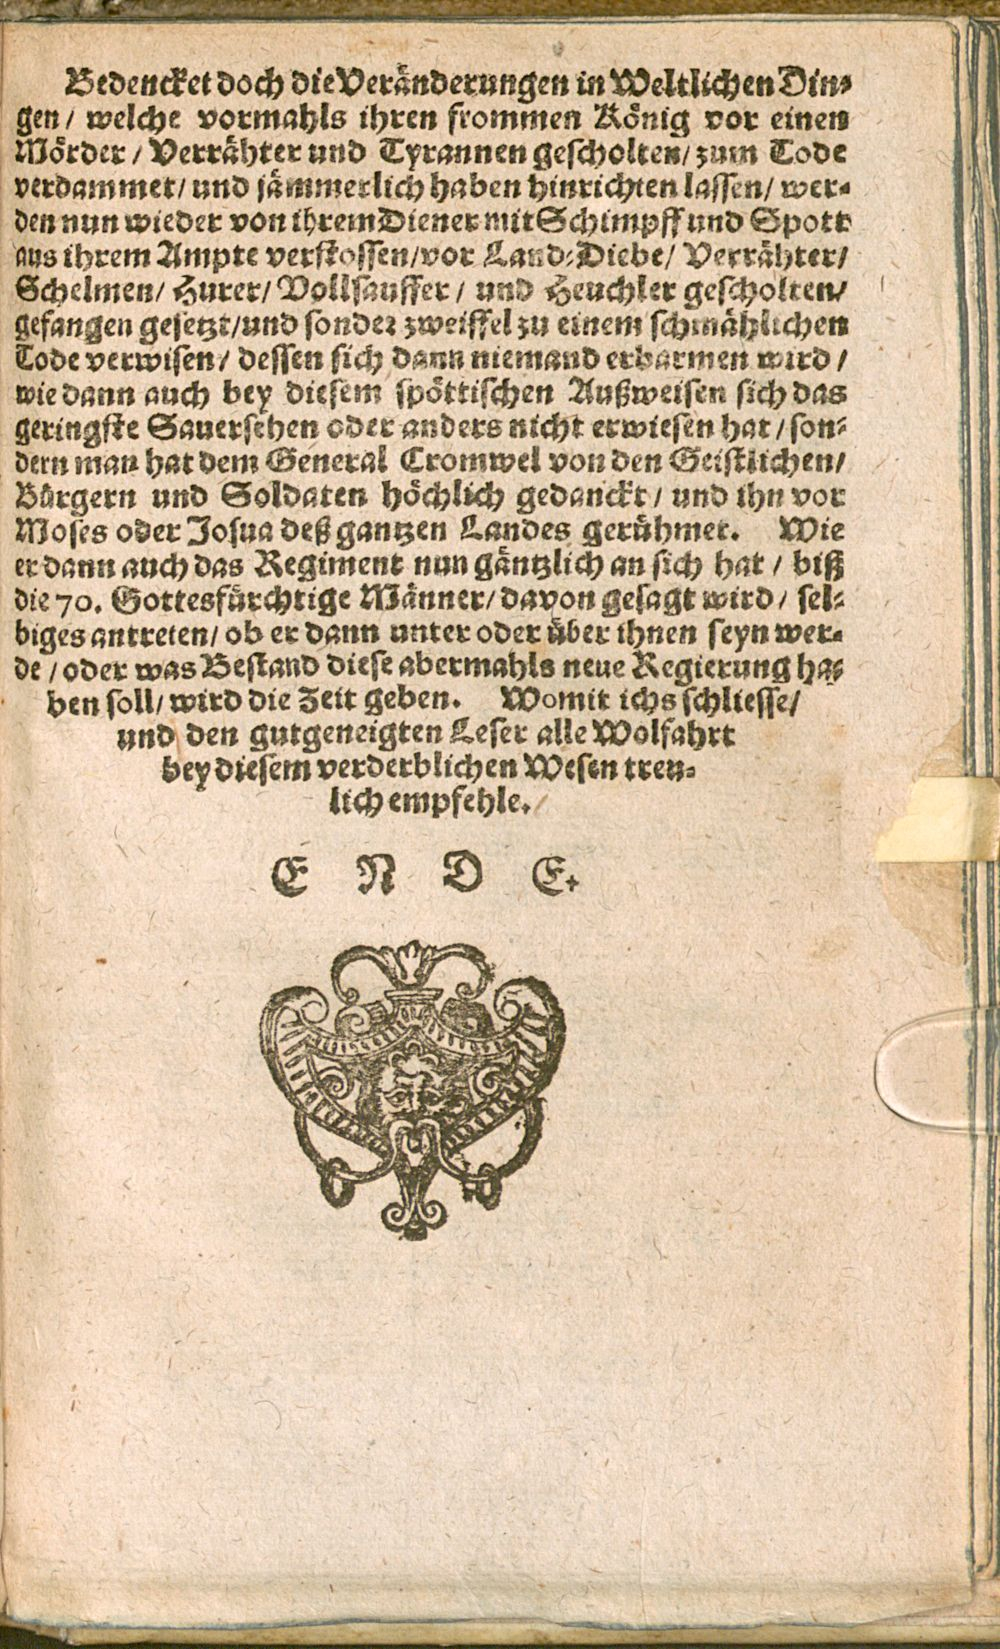 Bedencket doch die Veränderungen in Weltlichen Din-
gen / welche vormahls ihren frommen König vor einen
Mörder / Verrähter und Tyrannen gescholten / zum Tode
verdammet / und jämmerlich haben hinrichten lassen / wer-
den nun wieder von ihrem Diener mit Schimpff und Spott
aus ihrem Ampte verstossen / vor Land-Diebe / Verrähter /
Schelmen / Hurer / Vollsauffer / und Heuchler gescholten /
gefangen gesetzt / und sonder zweiffel zu einem schmählichen
Tode verwisen / dessen sich dann niemand erbarmen wird /
wie dann auch bey diesem spöttischen Außweisen sich das
geringste Sauersehen oder anders nicht erwiesen hat / son-
dern man hat dem General Cromwel von den Geistlichen /
Bürgern und Soldaten höchlich gedanckt / und ihn vor
Moses oder Josua deß gantzen Landes gerühmet. Wie
er dann auch das Regiment nun gäntzlich an sich hat / biß
die 70. Gottesfürchtige Männer / davon gesagt wird / sel-
biges antreten / ob er dann unter oder über ihnen seyn wer-
de / oder was Bestand diese abermahls neue Regierung ha-
ben soll / wird die Zeit geben. Womit ichs schliesse /
und den gutgeneigten Leser alle Wolfahrt
bey diesem verderblichen Wesen treu-
lich empfehle.
E N D E.